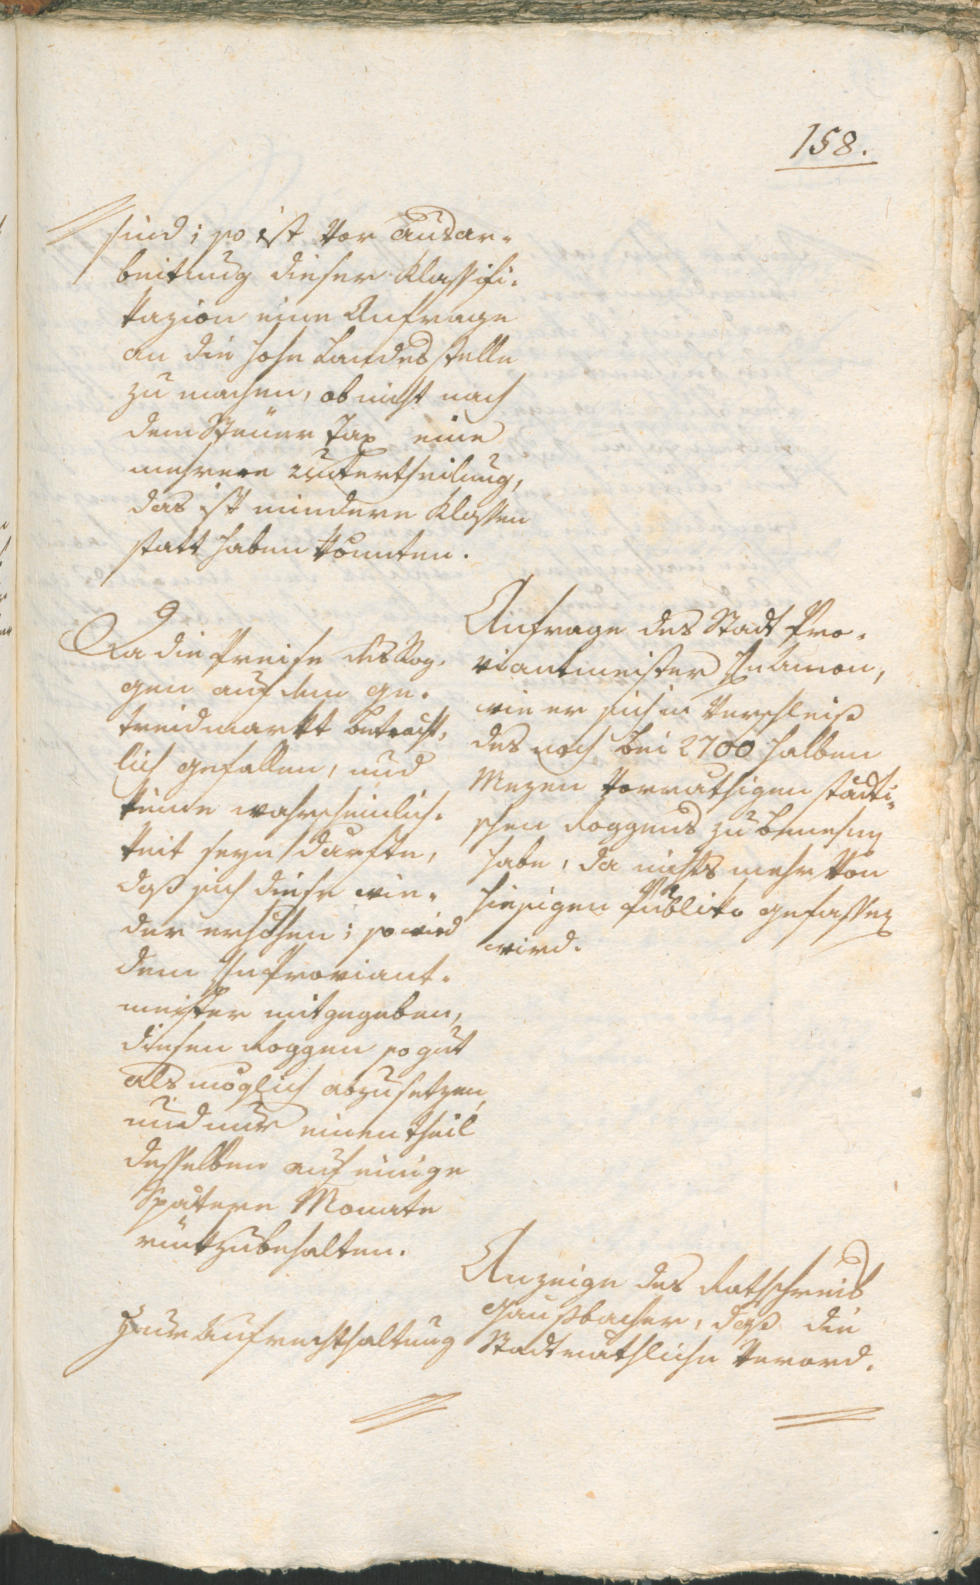 158.
sind; so ist vor Ausar-
beitung dieser Klassifi-
kazion eine Anfrage
an die hohe Landesstelle
zu machen, ob nicht nach
dem Steuer Tax eine
mehrere Untertheilung,
das ist mindere Klassen
statt haben könnten.
Da die Preise des Rog-
gen auf dem Ge-
treidmarkt beträcht-
lich gefallen, und
keine wahrscheinlich-
keit seyn dürfte,
daß sich diese wie-
der erhöhen; so wird
dem Proviant-
meister mitgegeben,
diesen Roggen so gut
als möglich abzusetzen,
und nur einen theil
desselben auf einige
Spätere Monate
rückzubehalten.
Zur Aufrechthaltung
Anfrage des Stadt Pro-
viantmeister
wie er sich in Verschleiß
des noch bei 2700 halben
Mezen vorräthigen städti-
schen Roggens zu benehmen
habe, da nichts mehr von
hiesigen Publiko gefasset
wird.
Anzeige des Rathschreib
Gaußbacher, daß die
Stadträthliche Verord-